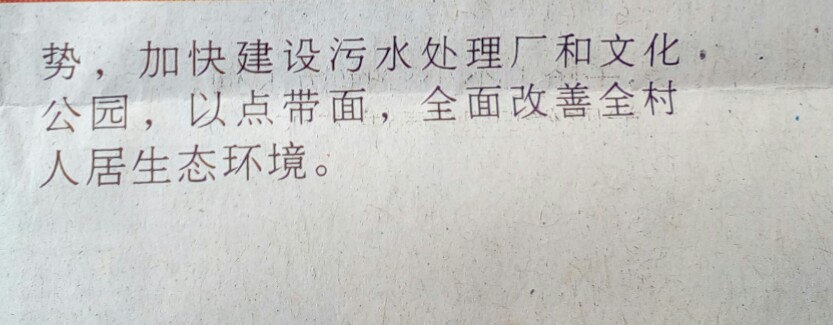 势，加快建设污水处理厂和文化
公园，以点带面，全面改善全村
人居生态环境。